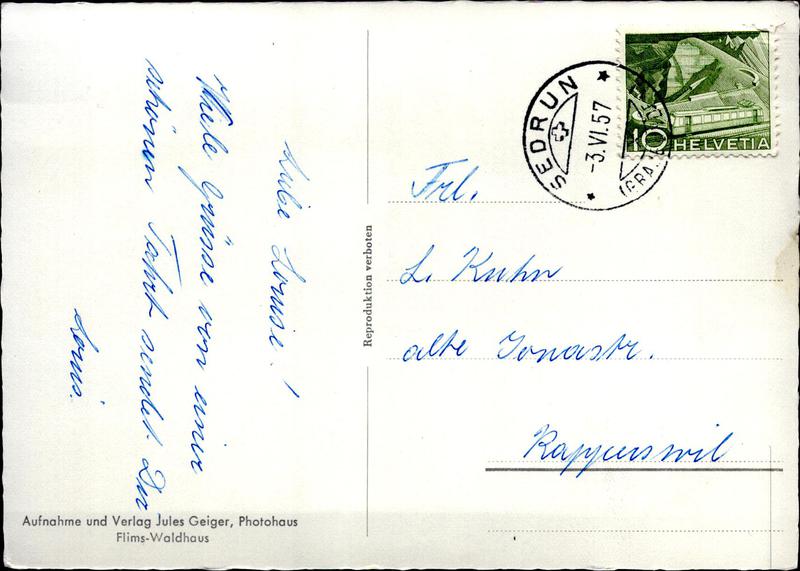 Liebe Louise!
Viele Grüsse von einer
schönen Fahrt sendet Dir
Louis.
Aufnahme und Verlag Jules Geiger, Photohaus
Flims-Waldhaus
Reproduktion verboten
SEDRUN
-3.VI.57
(GRA
10 HELVETIA
Frl.
L. Kuhn
alte Jonastr.
Rapperswil